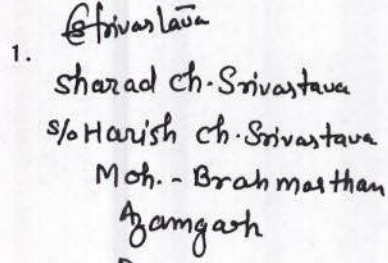 Srivastava
1.
Sharad Ch. Srivastava
S/o Harish Ch. Srivastava
Moh. - Brahmasthan
Azamgarh